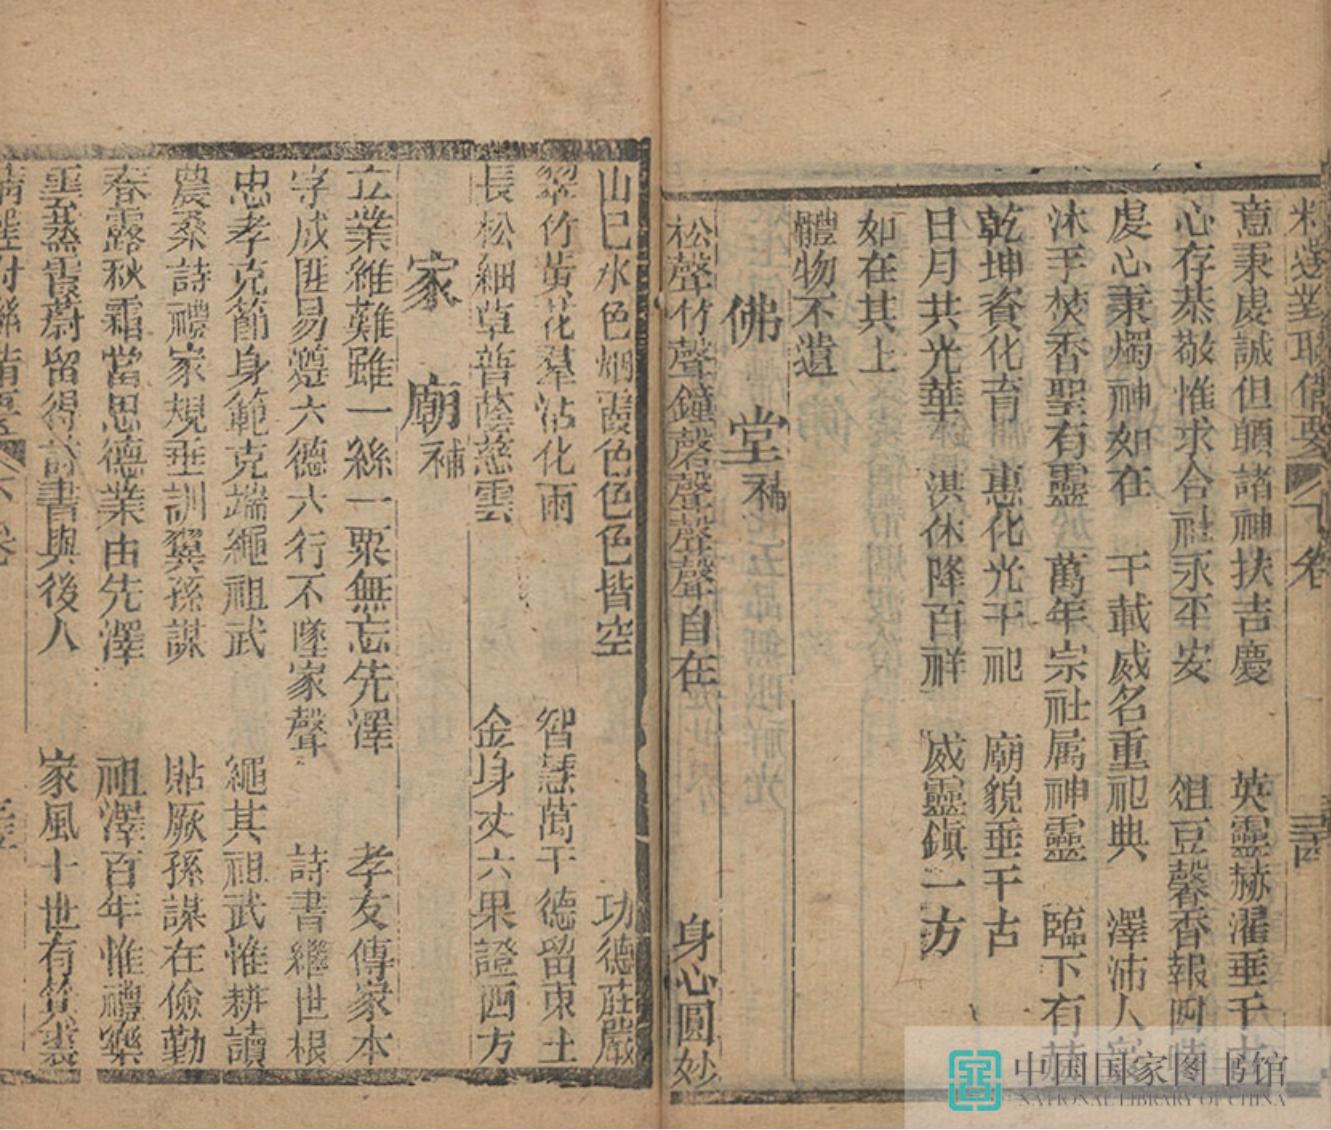 精選對聯備要 下卷 三十四
意秉虔誠但願諸神扶吉慶 英靈赫濯垂千古
心存恭敬惟求合社永平安 俎豆馨香報四時
虔心秉燭神如在 千載威名重祀典 澤沛人寰
沐手焚香聖有靈 萬年宗社属神靈 臨下有赫
乾坤資化育 惠化光千祀 廟貌垂千古
日月共光華 洪休降百祥 威靈鎮一方
如在其上
體物不遺
佛堂補
松聲竹聲鐘磬聲聲聲自在 身心圓妙
山色水色烟霞色色色皆空 功德莊嚴
翠竹黃花羣沾化雨 智慧萬千德留東土
長松細草普蔭慈雲 金身丈六果證西方
家廟補
立業維難雖一絲一粟無忘先澤 孝友傳家本
守成匪易遵六德六行不墜家聲 詩書繼世根
忠孝克節身範克端繩祖武 繩其祖武惟耕讀
農桑詩禮家規垂訓翼孫謀 貽厥孫謀在儉勤
春露秋霜當思德業由先澤 祖澤百年惟禮樂
雲蒸霞蔚留得詩書與後人 家風十世有箕裘
精選對聯備要 下卷
中国国家图书馆
NATIONAL LIBRARY OF CHINA